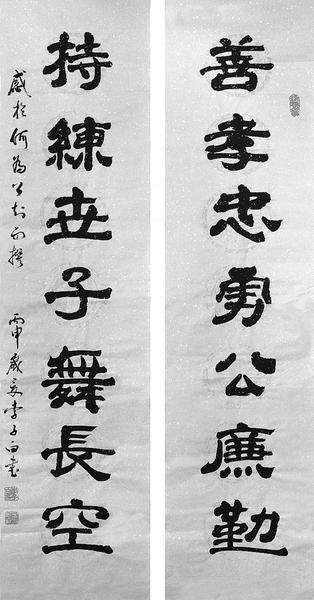 善孝忠勇公廉勤
持練世子舞長空
感於何為公知而撰 丙申歲李子白書